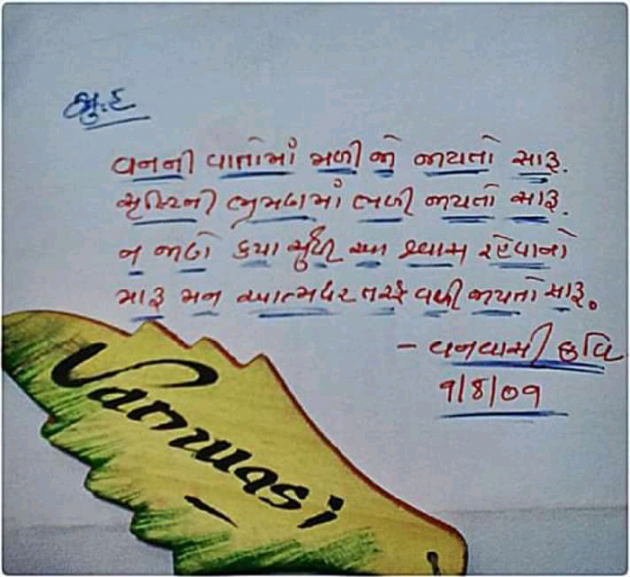 વનની વાતોમાં મળી જો જાયતો સારૂ.
સૃષ્ટિની ભ્રમણામાં ભળી જાયતો સારૂ.
ન જાણે કયા સુધી આ શ્વાસ રહેવાનો
મારૂ મન આત્મઘર તરફ વળી જાયતો સારૂ.
- વનવાસી કવિ
૧/૮/૦૯
Vanwasi